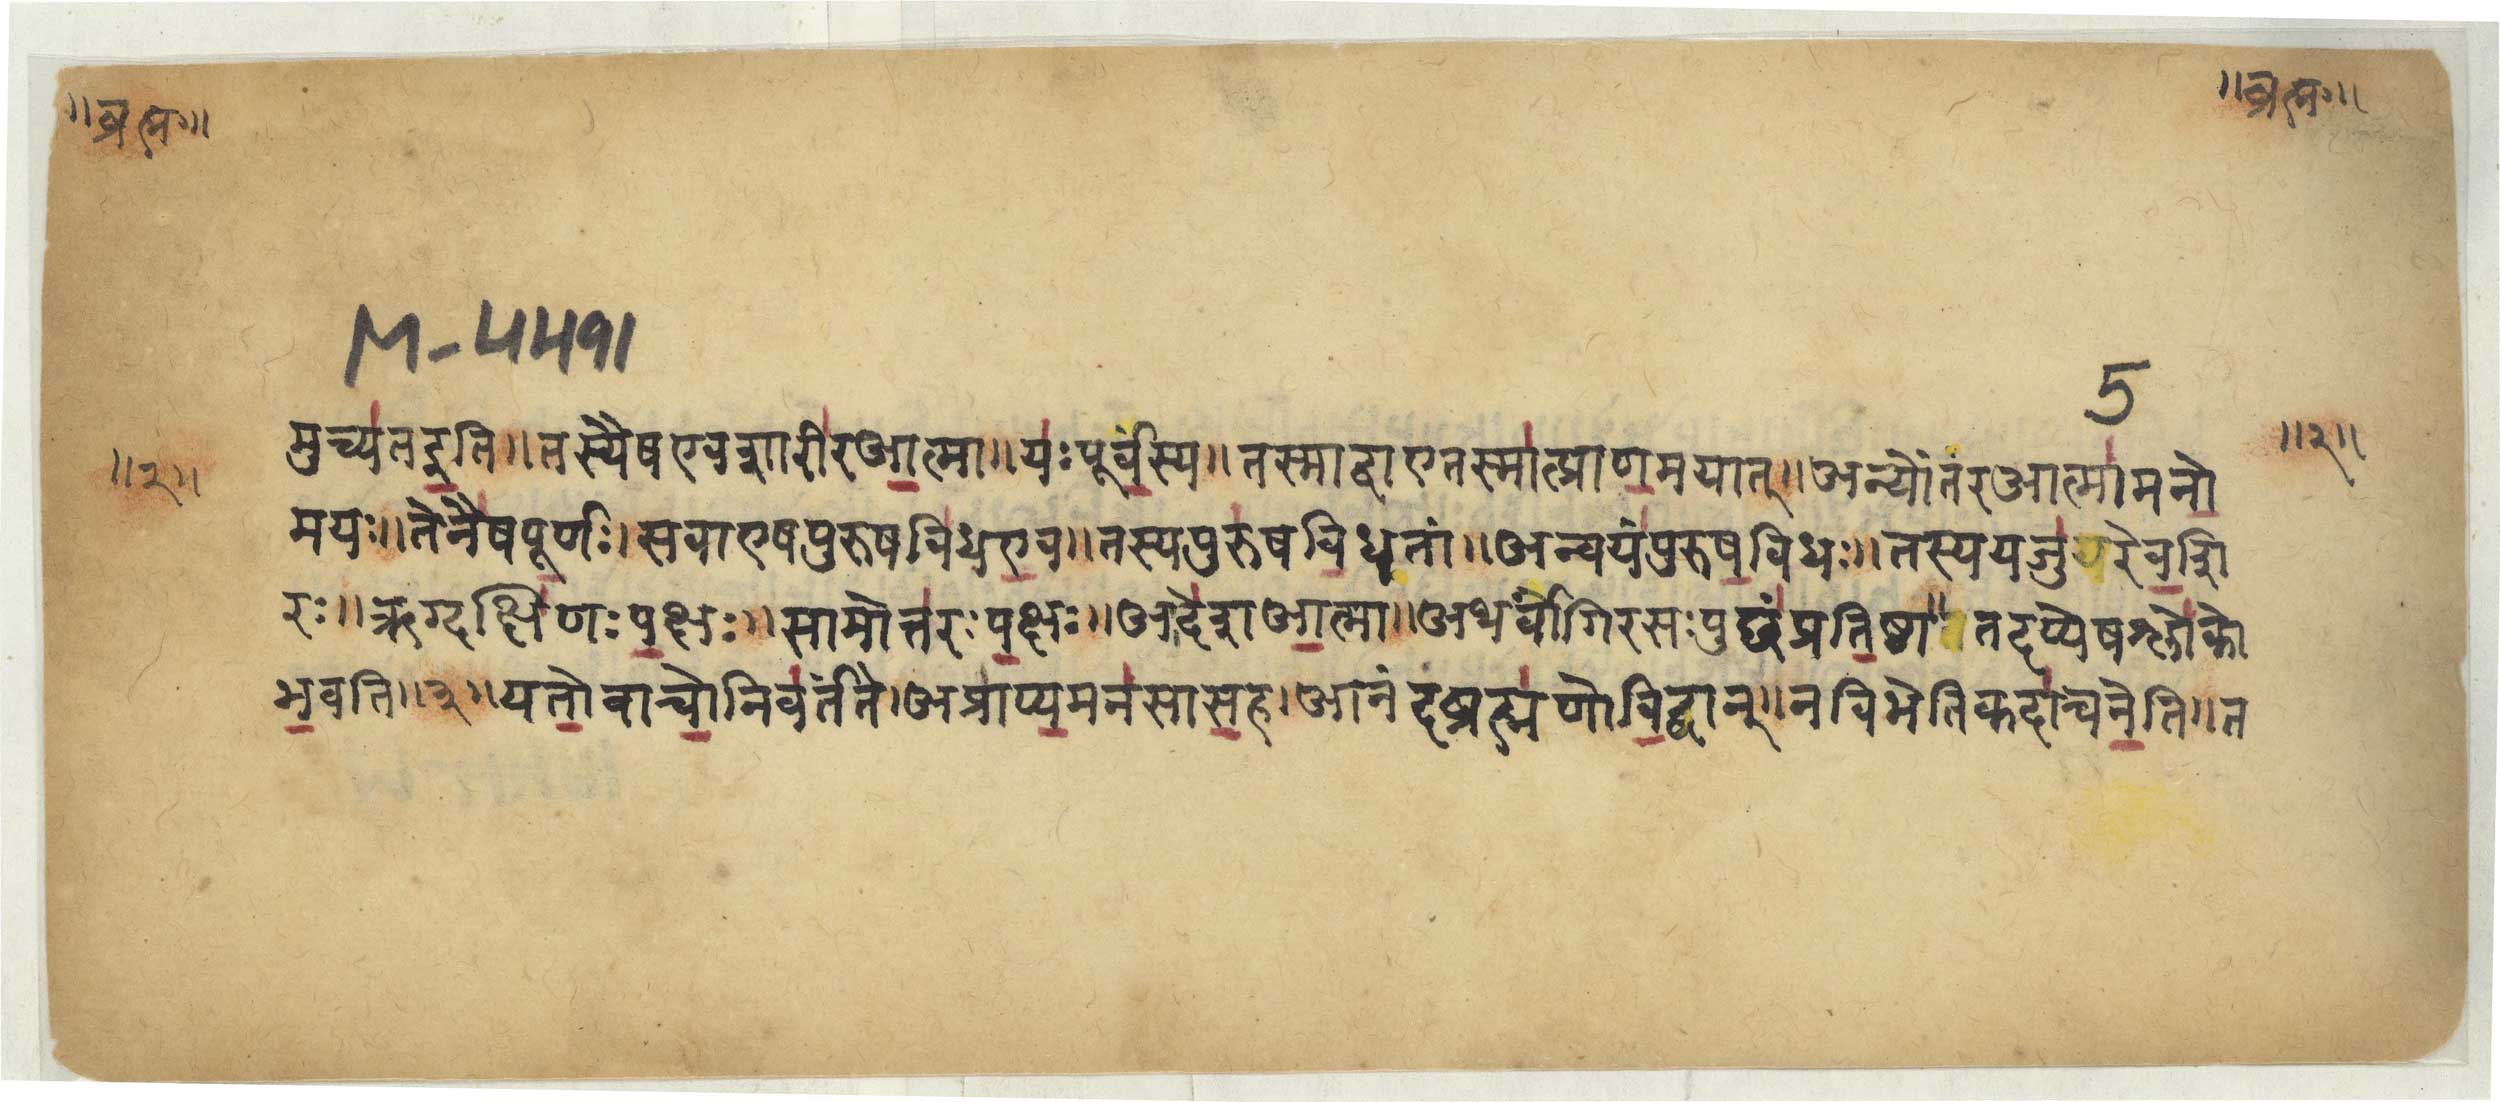 ॥ब्रह्म॥
॥ब्रह्म॥
M-५५९१
5
मुच्यतइति॥तस्यैषएवशारीरआत्मा॥यःपूर्वस्य॥तस्माद्वाएतस्मात्प्राणमयात्॥अन्योंतरआत्मामनो
॥२॥
॥२॥
मयः॥तेनैषपूर्णः।सवाएषपुरुषविधएव॥तस्यपुरुषविधतां॥अन्वयंपुरुषविधः॥तस्ययजुरेवशि
रः॥ऋग्दक्षिणःपक्षः॥सामोत्तरःपक्षः॥आदेशआत्मा॥अथर्वांगिरसःपुछंप्रतिष्ठा॥तदप्येषश्लोको
भवति॥३॥यतोवाचोनिवर्तंते।अप्राप्यमनसासह।आनंदंब्रह्मणोविद्वान्॥नबिभेतिकदाचनेति॥त